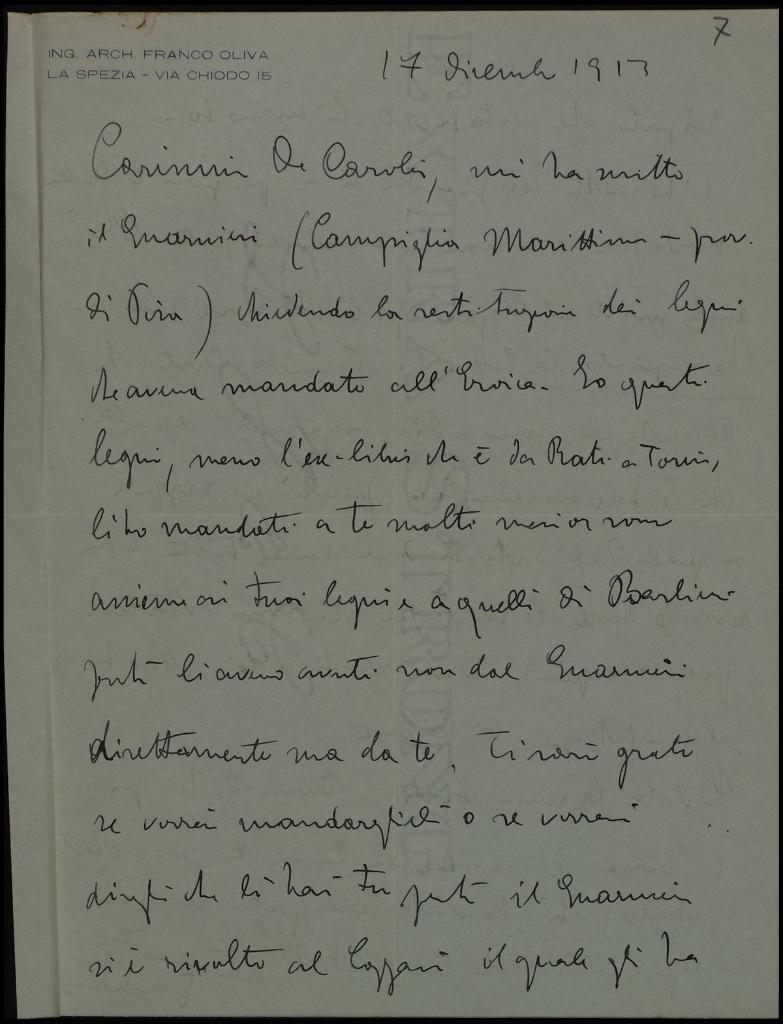 7
ING. ARCH. FRANCO OLIVA
LA SPEZIA - VIA CHIODO 15
17 dicembre 1913
Carissimo De Carolis, mi ha scritto
il Guarnieri (Campiglia Marittima - prov.
di Pisa) chiedendo la restituzione dei legni
che aveva mandato all'Eroica. Io questi
legni, meno l'ex-libris che è da Rati a Torino,
li ho mandati a te molti mesi or sono
assieme ai tuoi legni e a quelli di Barbieri
perché li avevo avuti non dal Guarnieri
direttamente ma da te. Ti sarei grato
se vorrai mandarglieli o se vorrai
dirgli che li hai tu perché il Guarnieri
si è rivolto al Cozzani il quale gli ha